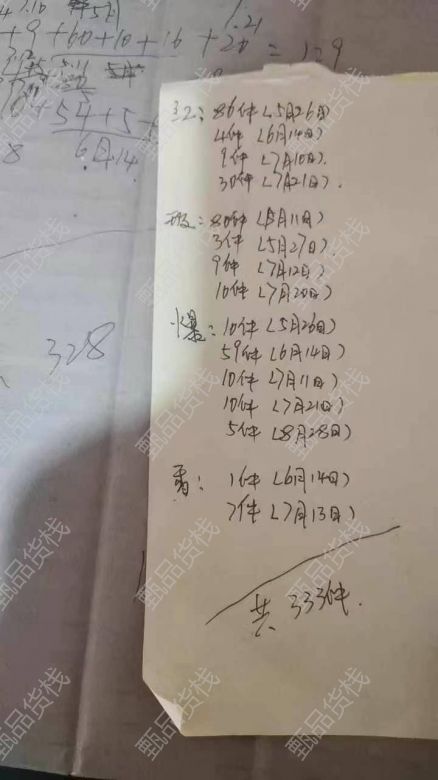 1.10
1.21
+9+60+10+16+20=129
54+5+
6月.14
8
328
红：86件（5月26日）
4件（6月14日）
9件（7月10日）.
30件（7月21日）.
80件（5月11日）
3件（5月27日）.
9件（7月12日）
10件（7月20日）
爆：10件（5月26日）
59件（6月14日）
10件（7月11日）
10件（7月21日）
5件（8月28日）
香：1件（6月14日）
7件（7月13日）
共333件.
甄品货栈